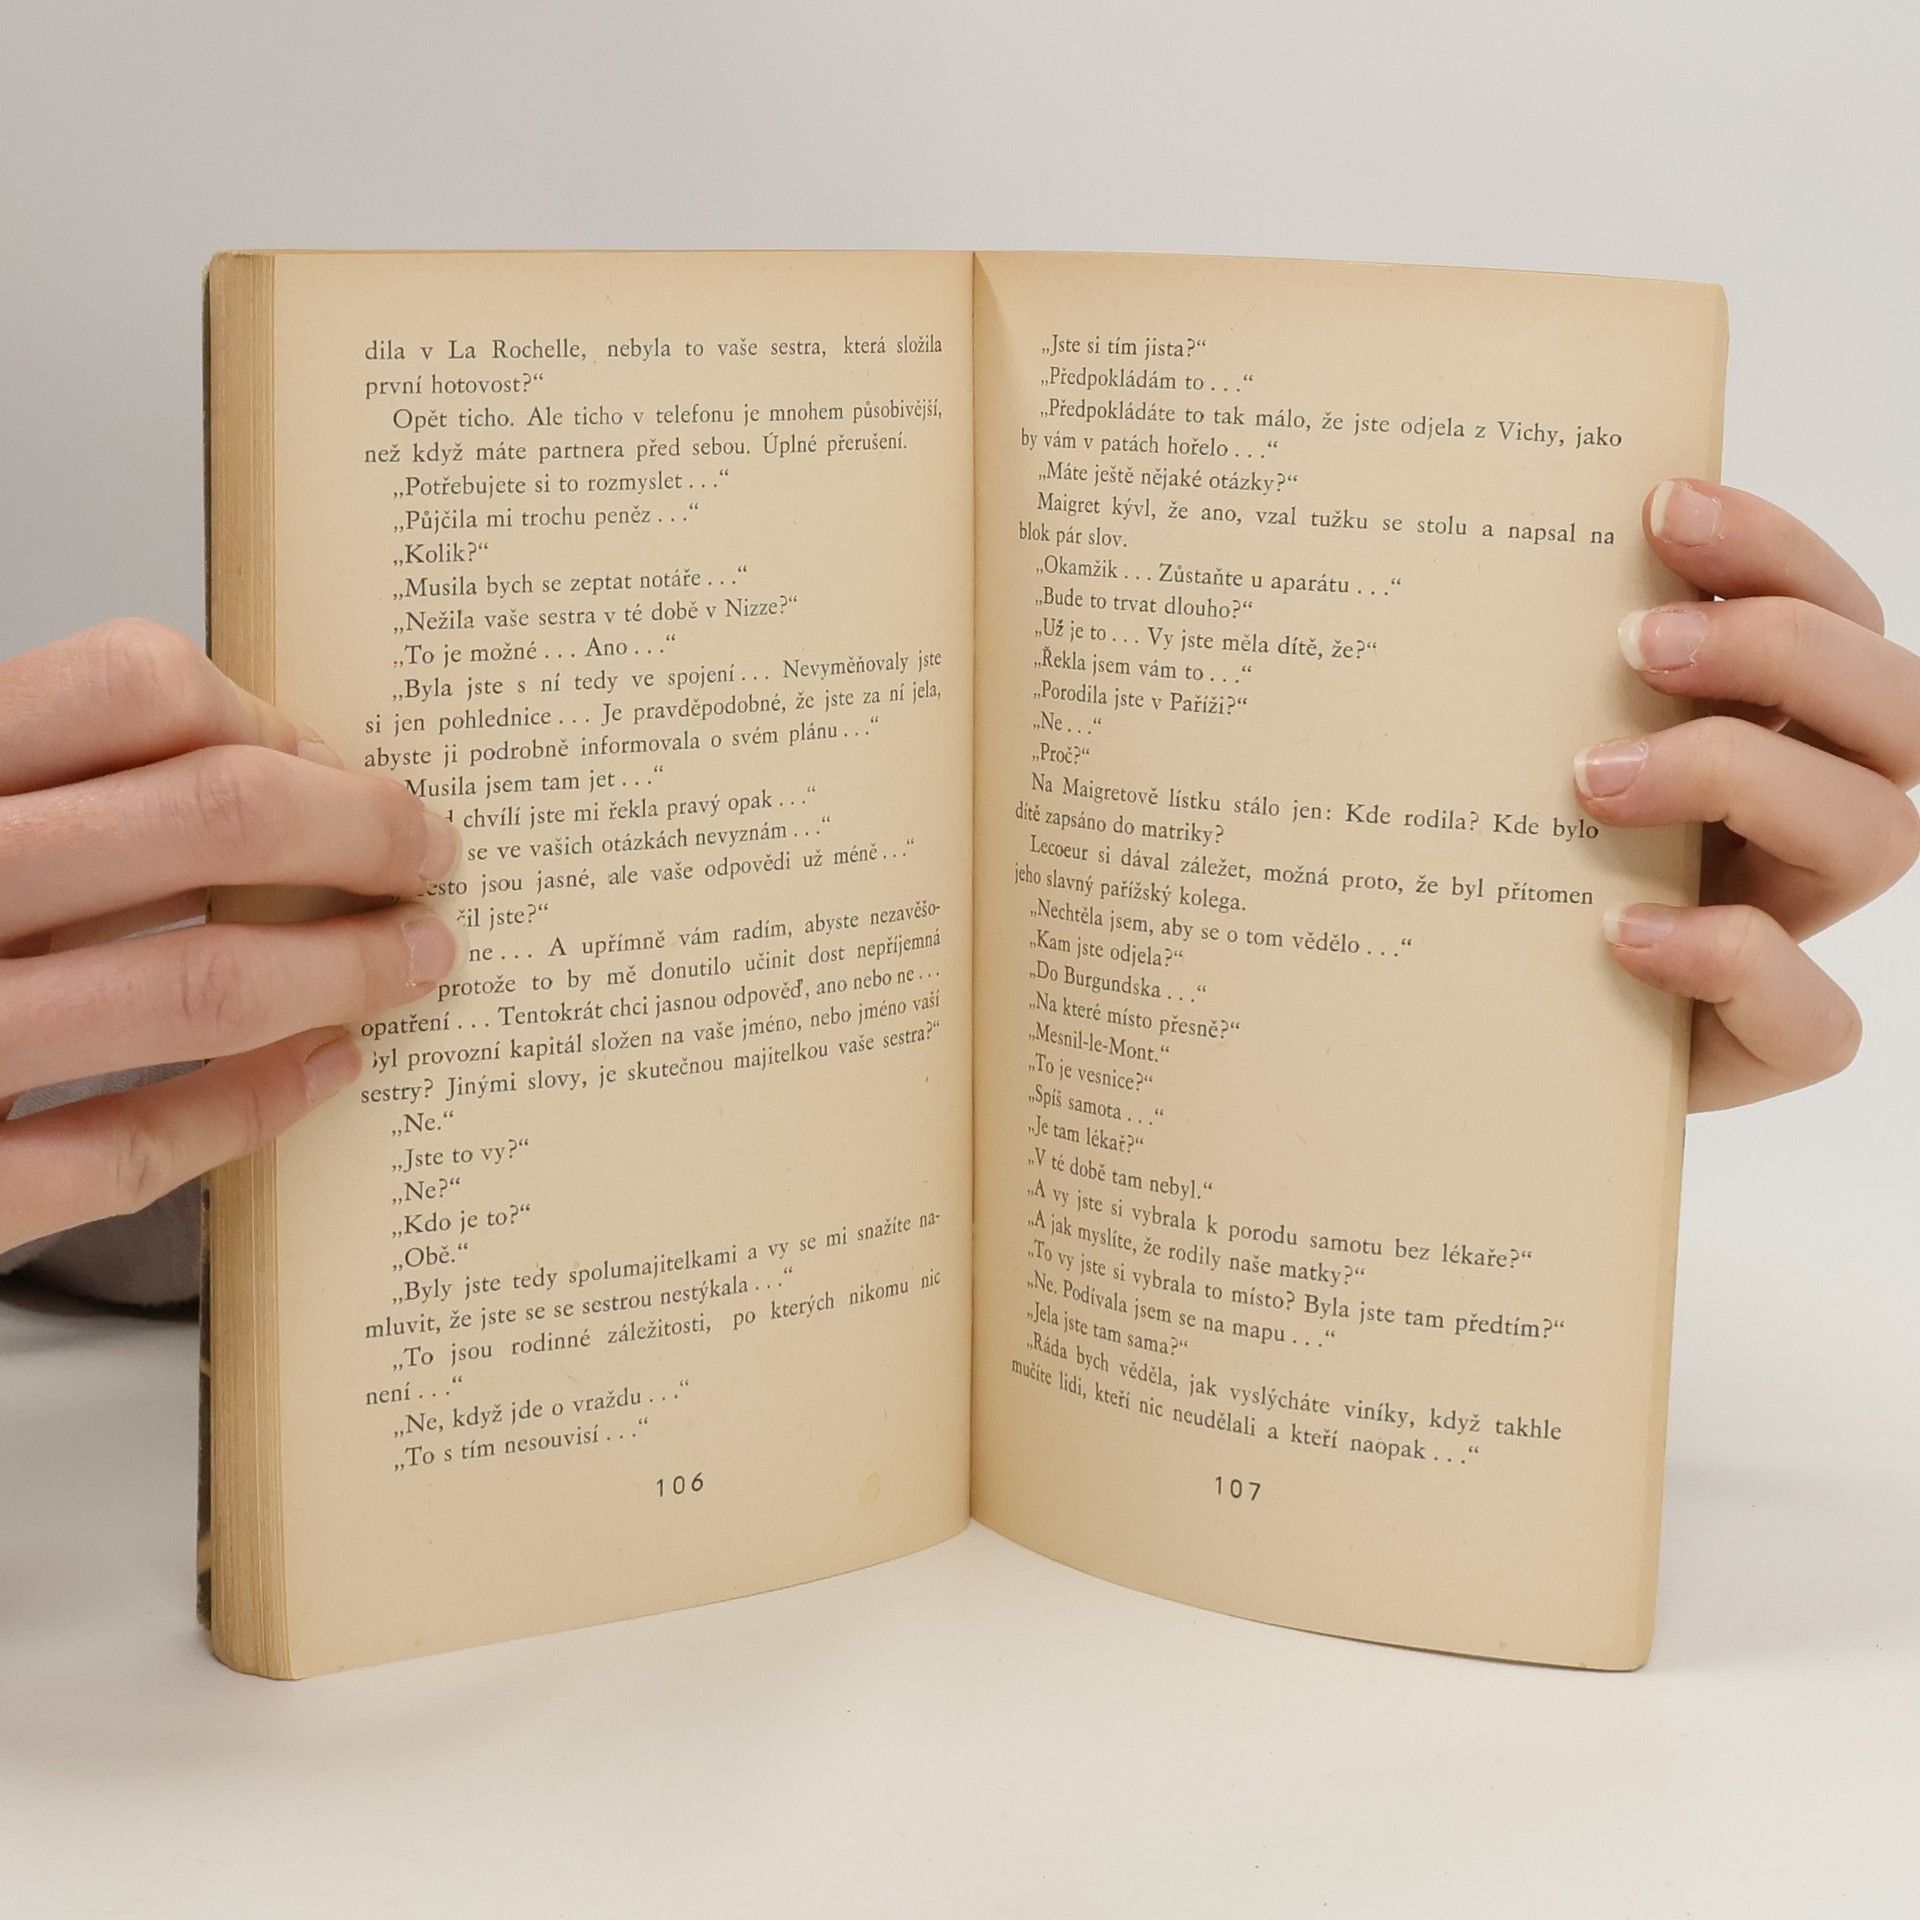 dila v La Rochelle, nebyla to vaše sestra, která složila
první hotovost?“
Opět ticho. Ale ticho v telefonu je mnohem působivější,
než když máte partnera před sebou. Úplné přerušení.
„Potřebujete si to rozmyslet . . .“
„Půjčila mi trochu peněz . . .“
„Kolik?“
„Musila bych se zeptat notáře . . .“
„Nežila vaše sestra v té době v Nizze?“
„To je možné . . . Ano . . .“
„Byla jste s ní tedy ve spojení . . . Nevyměňovaly jste
si jen pohlednice . . . Je pravděpodobné, že jste za ní jela,
abyste ji podrobně informovala o svém plánu . . .“
Musila jsem tam jet . . .“
chvílí jste mi řekla pravý opak . . .“
se ve vašich otázkách nevyznám . . .“
jsou jasné, ale vaše odpovědi už méně . . .“
jste?“
ne . . . A upřímně vám radím, abyste nezavěšo-
protože to by mě donutilo učinit dost nepříjemná
opatření . . . Tentokrát chci jasnou odpověď, ano nebo ne . . .
Byl provozní kapitál složen na vaše jméno, nebo jméno vaší
sestry? Jinými slovy, je skutečnou majitelkou vaše sestra?“
„Ne.“
„Jste to vy?“
„Ne?“
„Kdo je to?“
„Obě.“
„Byly jste tedy spolumajitelkami a vy se mi snažíte na-
mluvit, že jste se se sestrou nestýkala . . .“
„To jsou rodinné záležitosti, po kterých nikomu nic
není . . .“
„Ne, když jde o vraždu . . .“
„To s tím nesouvisí . . .“
106
„Jste si tím jista?“
„Předpokládám to . . .“
„Předpokládáte to tak málo, že jste odjela z Vichy, jako
by vám v patách hořelo . . .“
„Máte ještě nějaké otázky?“
Maigret kývl, že ano, vzal tužku se stolu a napsal na
blok pár slov.
„Okamžik . . . Zůstaňte u aparátu . . .“
„Bude to trvat dlouho?“
„Už je to . . . Vy jste měla dítě, že?“
„Řekla jsem vám to . . .“
„Porodila jste v Paříži?“
„Ne . . .“
„Proč?“
Na Maigretově lístku stálo jen: Kde rodila? Kde bylo
dítě zapsáno do matriky?
Lecoeur si dával záležet, možná proto, že byl přítomen
jeho slavný pařížský kolega.
„Nechtěla jsem, aby se o tom vědělo . . .“
„Kam jste odjela?“
„Do Burgundska . . .“
„Na které místo přesně?“
„Mesnil-le-Mont.“
„To je vesnice?“
„Spíš samota . . .“
„Je tam lékař?“
„V té době tam nebyl.“
„A vy jste si vybrala k porodu samotu bez lékaře?“
„A jak myslíte, že rodily naše matky?“
„To vy jste si vybrala to místo? Byla jste tam předtím?“
„Ne. Podívala jsem se na mapu . . .“
„Jela jste tam sama?“
„Ráda bych věděla, jak vyslýcháte viníky, když takhle
mučíte lidi, kteří nic neudělali a kteří naopak . . .“
107